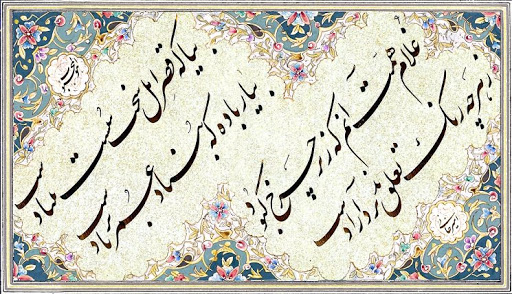 بیا که قصر امل سخت سست بنیاد است
بیار باده که بنیاد عمر بر باد است
غلام همت آنم که زیر چرخ کبود
ز هر چه رنگ تعلق پذیرد آزاد است